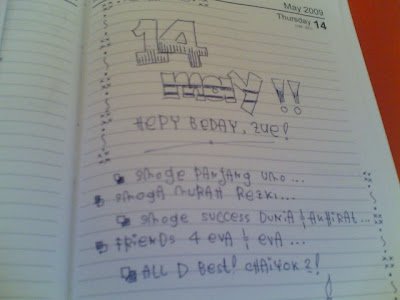 May 2009
Thursday 14
14
may !!
HEPY BEDAY, ZUE!
smoge panjang umo...
smoga murah rezki...
smoge success dunia & akhirat...
friends 4 eva & eva...
ALL D BEST! CHAIYOK 2!